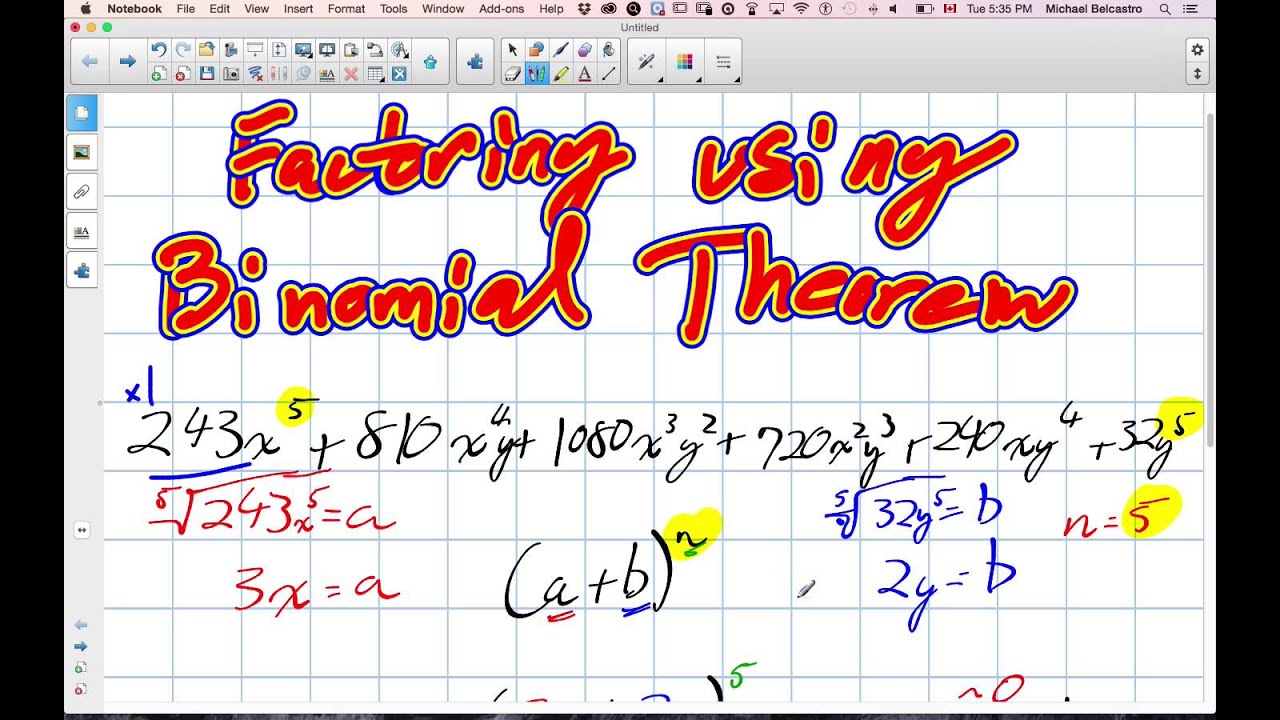 Notebook File Edit View Insert Format Tools Window Add-ons Help Tue 5:35 PM Michael Belcastro
Untitled
Factoring using
Binomial Theorem
x1
243x⁵ + 810x⁴y + 1080x³y² + 720x²y³ + 240xy⁴ + 32y⁵
⁵√243x⁵ = a ⁵√32y⁵ = b n = 5
(a+b)ⁿ
3x = a 2y = b
5